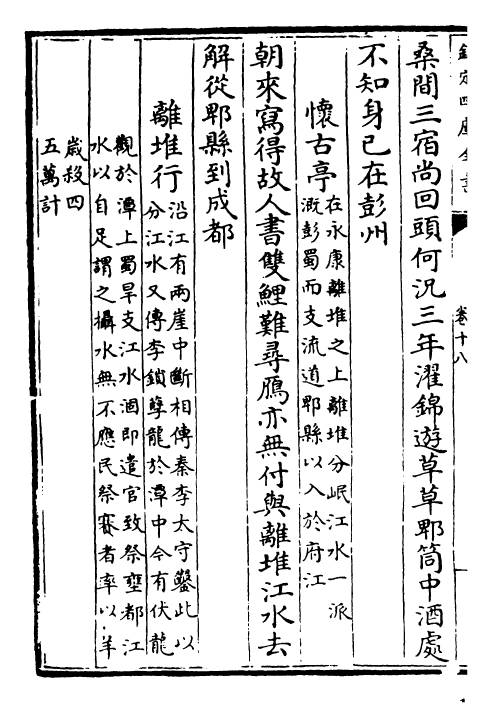 欽定四庫全書
卷十八
桑間三宿尚回頭何況三年濯錦遊草草郫筒中酒處
不知身已在彭州
懷古亭
在永康離堆之上離堆分岷江水一派
溉彭蜀而支流道郫縣以入於府江
朝來寫得故人書雙鯉難尋鴈亦無付與離堆江水去
解從郫縣到成都
離堆行
沿江有兩崖中斷相傳秦李太守鑿此以
分江水又傳李鎖孽龍於潭中今有伏龍
觀於潭上蜀旱支江水涸即遣官致祭壅都江
水以自足謂之攝水無不應民祭賽者率以羊
歲殺四
五萬計